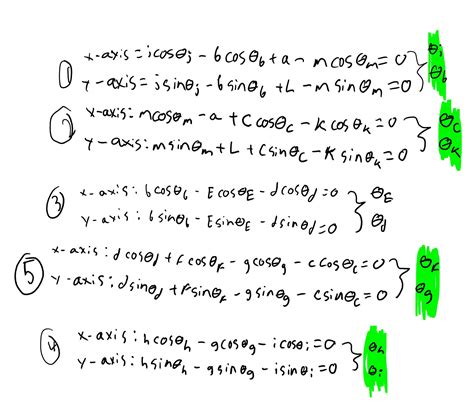 ① x-axis = jcosθj - bcosθb + a - mcosθm = 0 } θj
y-axis = jsinθj - bsinθb + L - msinθm = 0 θb
② x-axis: mcosθm - a + Ccosθc - Kcosθk = 0 } θc
y-axis: msinθm + L + Csinθc - Ksinθk = 0 θk
③ x-axis: bcosθb - EcosθE - dcosθd = 0 } θE
y-axis: bsinθb - EsinθE - dsinθd = 0 θd
⑤ x-axis: dcosθd + fcosθf - gcosθg - ccosθc = 0 } θf
y-axis: dsinθd + fsinθf - gsinθg - csinθc = 0 θg
④ x-axis: hcosθh - gcosθg - icosθi = 0 } θh
y-axis: hsinθh - gsinθg - isinθi = 0 θi